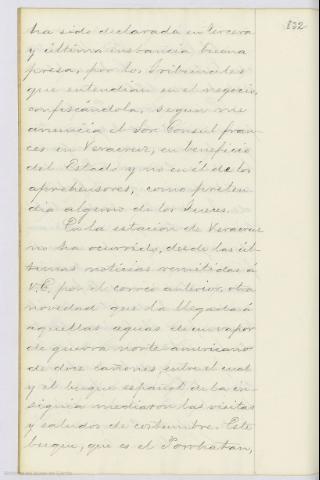 832
ha sido declarada en tercera
y última instancia buena
presa, por los tribunales
que entendian en el negocio,
confiscándola, segun me
anuncia el Sor. Consul fran-
ces en Veracruz, en beneficio
del Estado y no en el de los
aprehensores, como preten-
dia alguno de los Jueces.
En la estacion de Veracruz
no ha ocurrido, desde las úl-
timas noticias remitidas á
V.E. por el correo anterior, otra
novedad que la llegada á
aquellas aguas de un vapor
de guerra norte americano
de doce cañones, entre el cual
y el buque español de la in-
signia mediaron las visitas
y saludos de costumbre. Este
buque, que es el Powhatan,